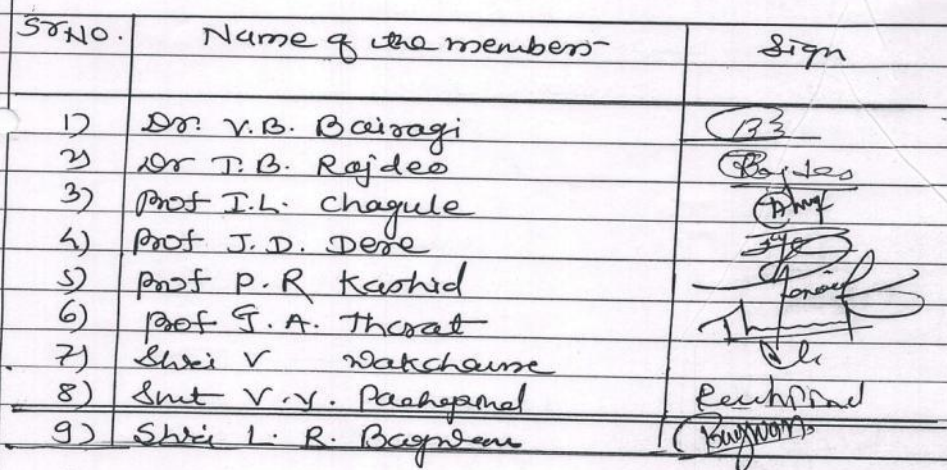 Sr NO. Name of the members Sign
1) Dr. V.B. Bairagi
2) Dr T.B. Rajdeo Rajdeo
3) Prof I.L. Chagule
4) Prof J.D. Dere
5) Prof P.R Kashid
6) Prof G.A. Thorat
7) Shri V Wakchaure
8) Smt V.V. Pachpind
9) Shri L.R. Bagwan Bagwan